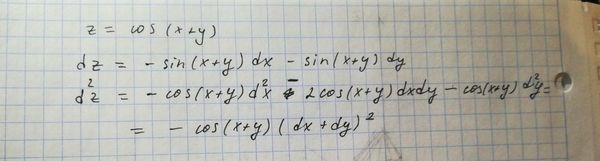 z = cos (x+y)
dz = - sin(x+y) dx - sin(x+y) dy
d²z = - cos(x+y) d²x - 2cos(x+y) dxdy - cos(x+y) d²y =
= - cos(x+y) (dx+dy)²